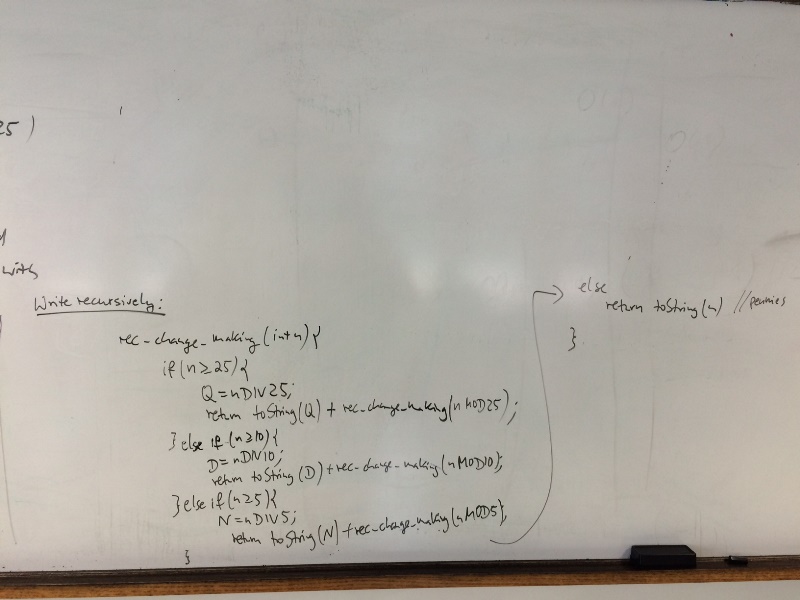 25)
with
Write recursively:
rec_change_making(int n){
if(n≥25){
Q=nDIV25;
return toString(Q) + rec_change_making(nMOD25);
}else if(n≥10){
D=nDIV10;
return toString(D)+rec_change_making(nMOD10);
}else if(n≥5){
N=nDIV5;
return toString(N)+rec_change_making(nMOD5);
}
else
return toString(n) //pennies
}